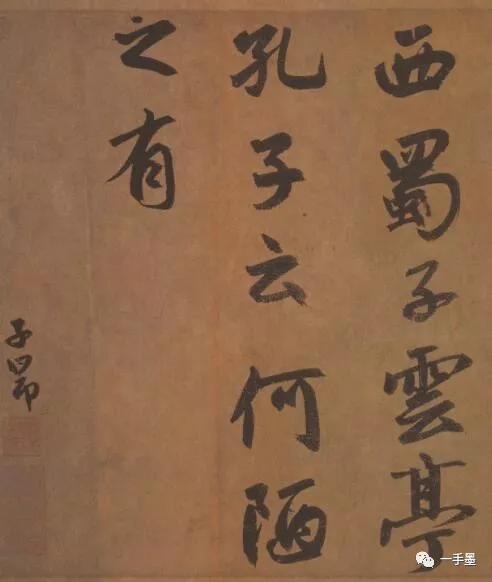 西蜀子雲亭
孔子云何陋
之有
子昂
一手墨